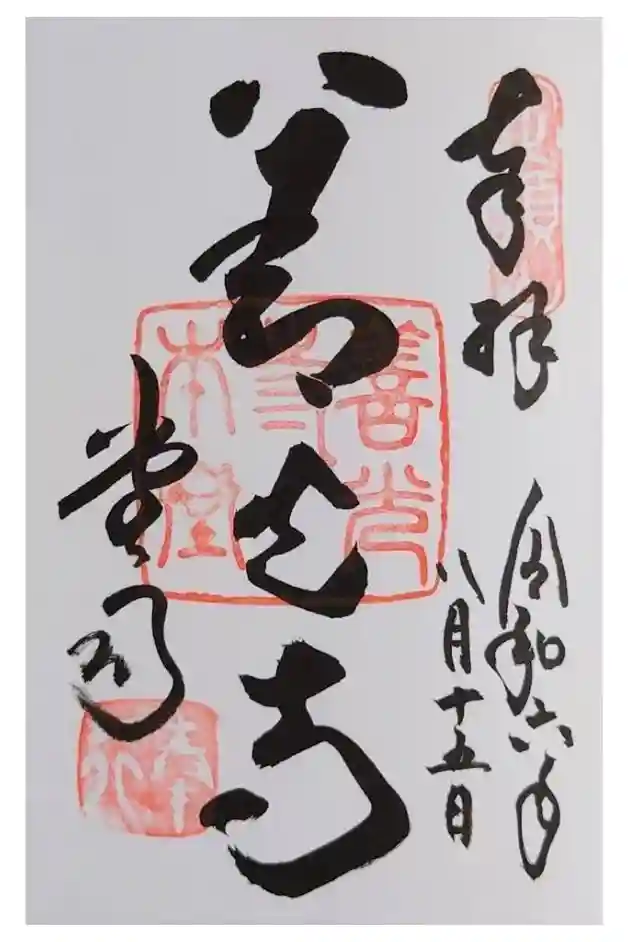 奉拝
令和六年
八月十五日
善光寺
堂司
善光
寺
本堂